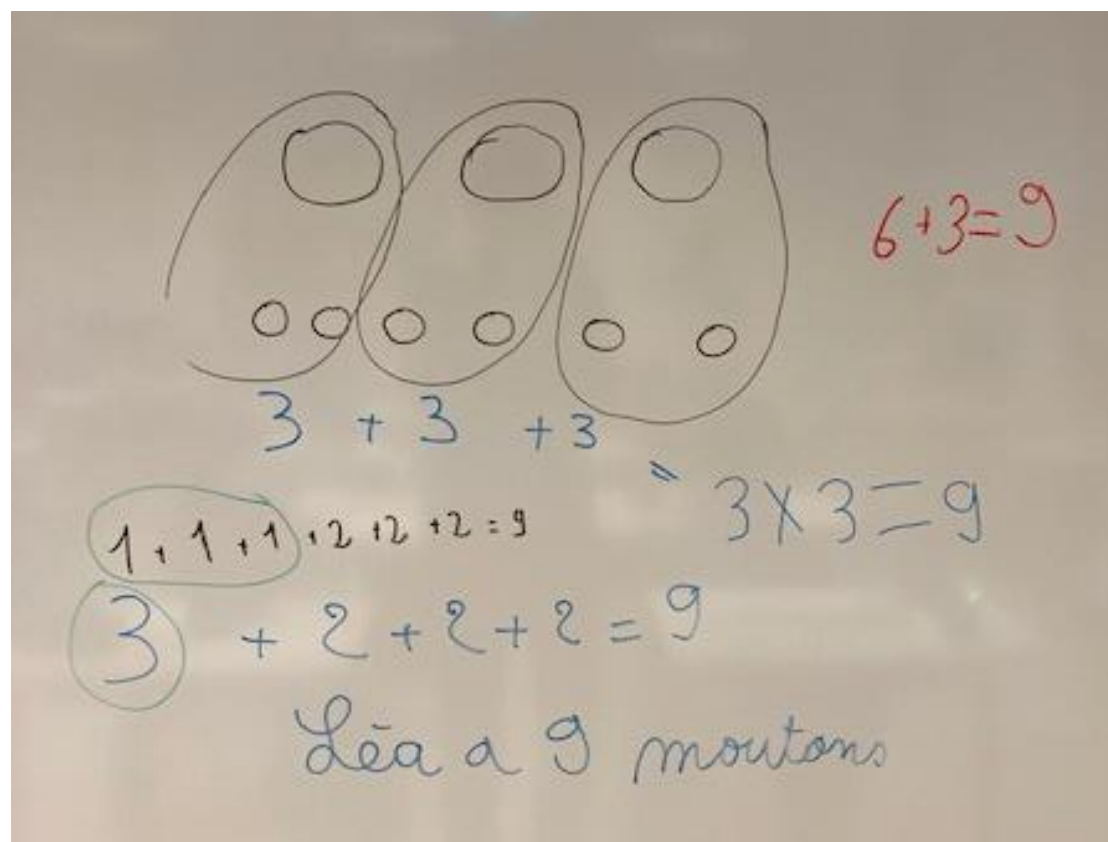 6+3=9
3 + 3 + 3
= 3×3=9
1+1+1+2+2+2=9
3 + 2+2+2=9
Léa a 9 moutons